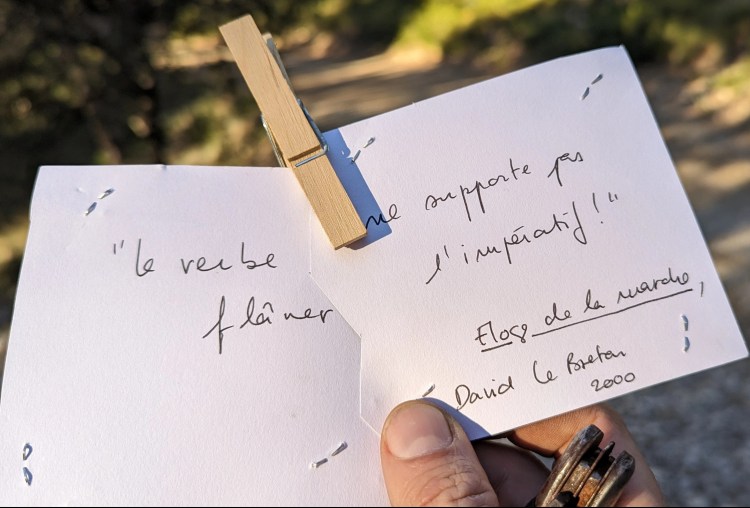 "le verbe
flâner
ne supporte pas
l'impératif!"
Eloge de la marche,
David le Breton
2000